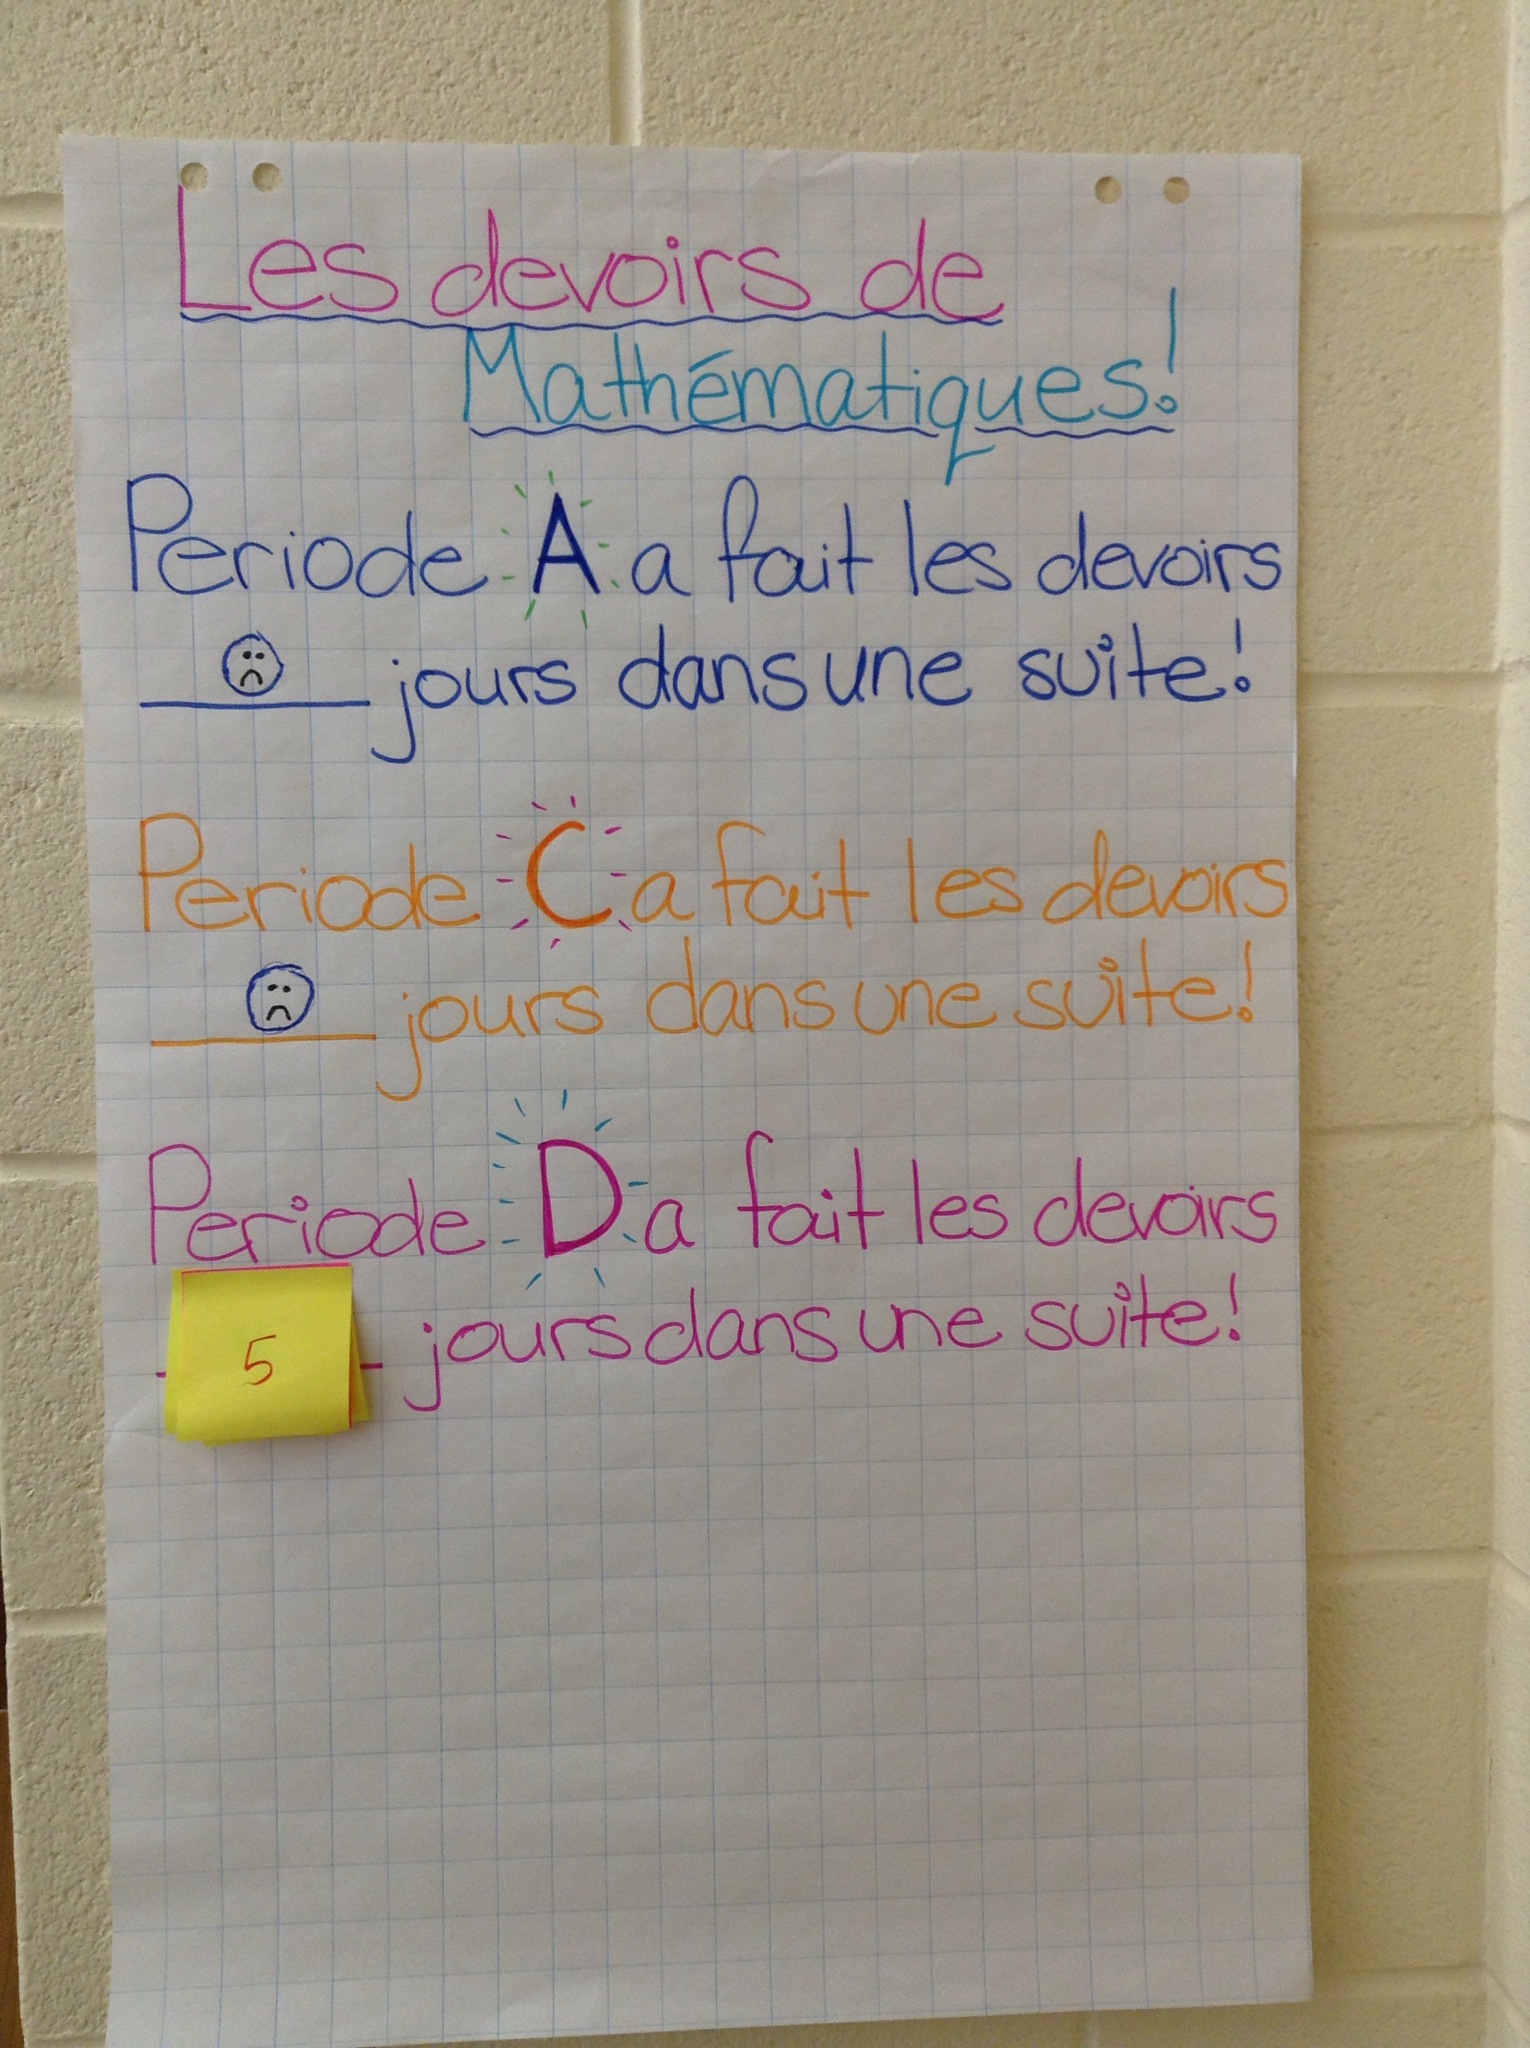 Les devoirs de
Mathématiques!
Periode A a fait les devoirs
jours dans une suite!
Periode C a fait les devoirs
jours dans une suite!
Periode D a fait les devoirs
5 jours dans une suite!